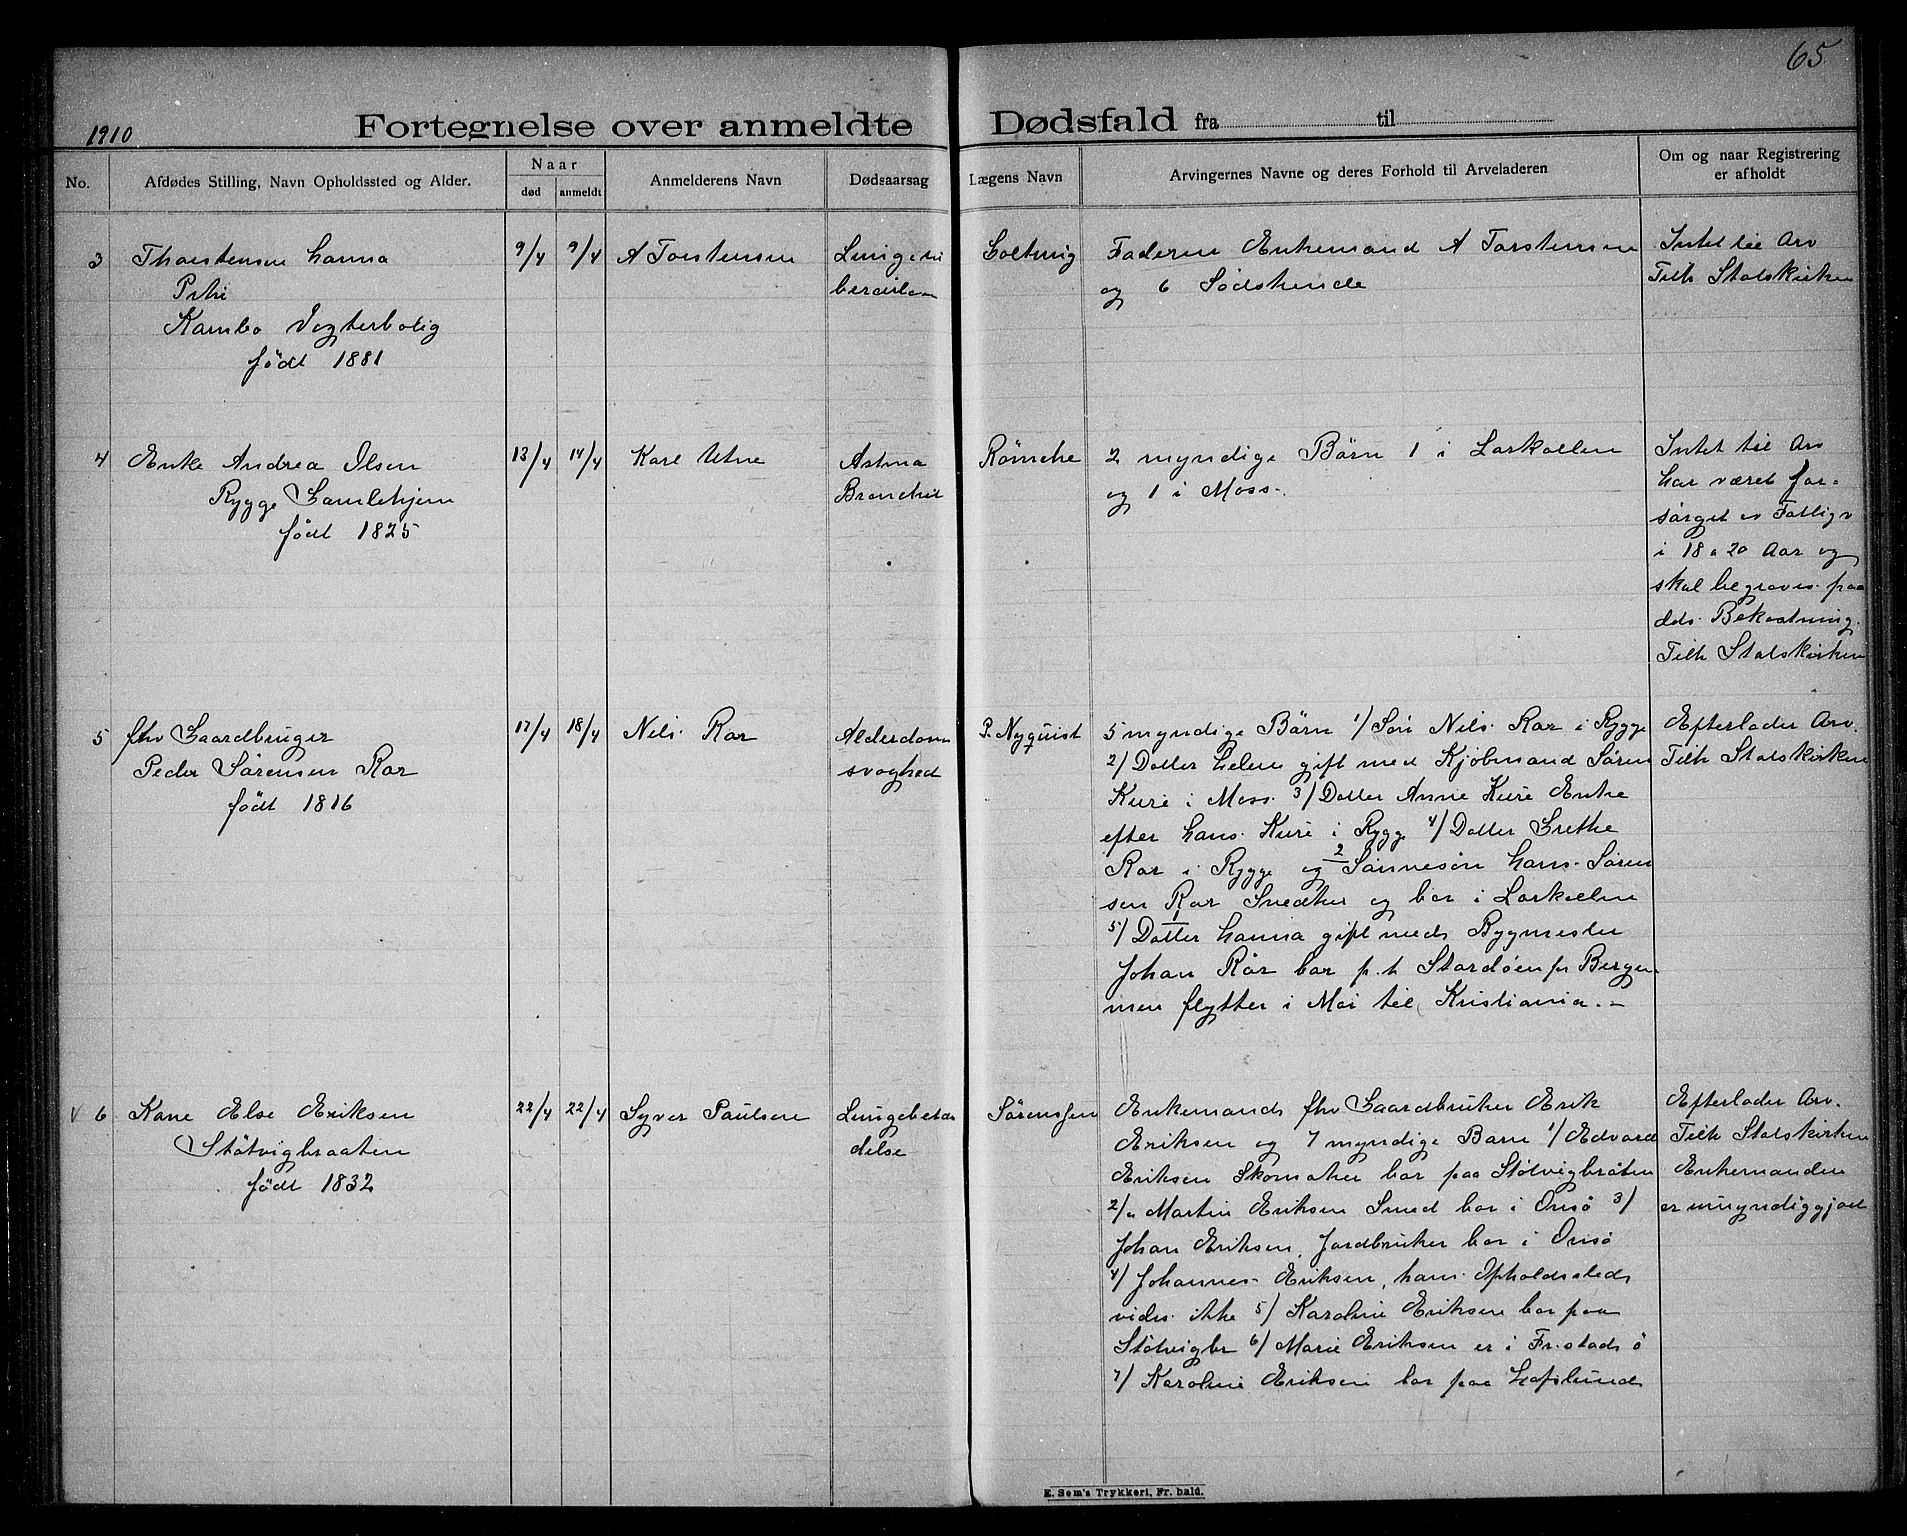 65
1910
Fortegnelse over anmeldte Dødsfald fra til
No.
Afdødes Stilling, Navn Opholdssted og Alder.
Naar
død
anmeldt
Anmelderens Navn
Dødsaarsag
Lægens Navn
Arvingernes Navne og deres Forhold til Arveladeren
Om og naar Registrering
er afholdt
3
Thorstensen Hanna
Petri
Kambo Vogterbolig
født 1881
9/4
9/4
A Torstensen
Lungetu
berculose
Coltung
Faderen Enkemand A Torstensen
og 6 Sødskende
Intet til Arv
Tilh Statskirken
4
Enke Andrea Olsen
Rygge Gamlehjem
født 1825
13/4
14/4
Karl Utne
Astma
Bronchit
Römcke
2 myndige Børn 1 i Larkollen
og 1 i Moss.
Intet til Arv
har været for-
sørget av Fattigv
i 18 a 20 Aar og
skal begraves paa
dds. Bekostning.
Tilh Statskirken
5
fhv Gaardbruger
Peder Sørensen Rør
født 1816
17/4
18/4
Nils Rør
Alderdoms
svaghed
P. Nyquist
5 myndige Børn 1/ Søn Nils Rør i Rygge
2/ Datter Helene gift med Kjøbmand Søren
Kure i Moss 3/ Datter Anne Kure Enke
efter Hans Kure i Rygge 4/ Datter Grethe
Rør i Rygge og 2 Sønnesøn Hans Søren
sen Rør Snedker og bor i Larkollen
5/ Datter Hanna gift med Bygmester
Johan Rør bor p.t. Stordøen pr Bergen
men flytter i Mai til Kristiania.-
Efterlader Arv.
Tilh Statskirken
6
Kone Else Eriksen
Støtvigbraaten
født 1832
22/4
22/4
Syver Paulsen
Lungebetæn
delse
Sørenssen
Enkemand fhv Gaardbruker Erik
Eriksen og 7 myndige Barn 1/ Edvard
Eriksen Skomaker bor paa Støtvigbråten
2/ Martin Eriksen Smed bor i Onsø 3/
Johan Eriksen, Jordbruker bor i Onsø
4/ Johannes Eriksen, hans Opholdssted
vides ikke 5/ Karoline Eriksen bor paa
Støtvigbr 6/ Marie Eriksen er i Fr.stad ø
7/ Karoline Eriksen bor paa Hafslund
Efterlader Arv.
Tilh Statskirken
Enkemanden
er umyndiggjort
E. Sem's Trykkeri, Fr. hald.